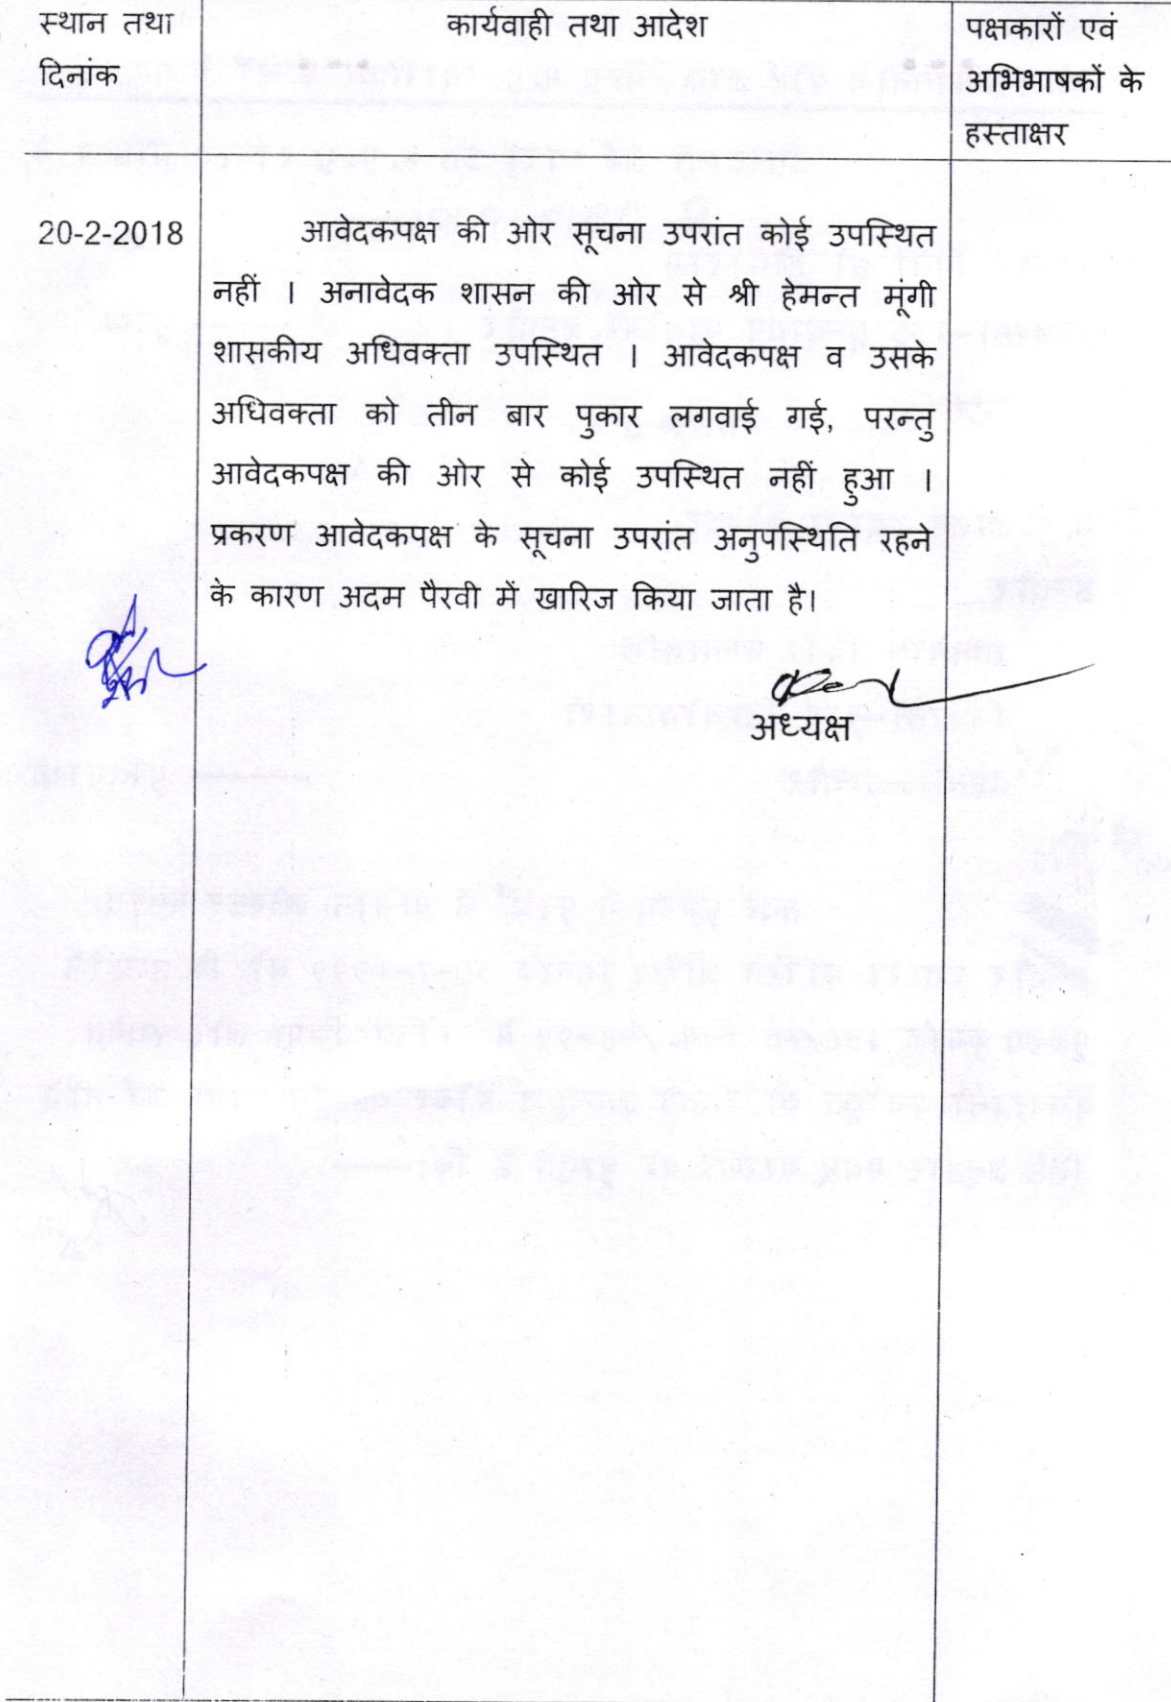 स्थान तथा
दिनांक
कार्यवाही तथा आदेश
पक्षकारों एवं
अभिभाषकों के
हस्ताक्षर
20-2-2018
आवेदकपक्ष की ओर सूचना उपरांत कोई उपस्थित
नहीं । अनावेदक शासन की ओर से श्री हेमन्त मूंगी
शासकीय अधिवक्ता उपस्थित । आवेदकपक्ष व उसके
अधिवक्ता को तीन बार पुकार लगवाई गई, परन्तु
आवेदकपक्ष की ओर से कोई उपस्थित नहीं हुआ ।
प्रकरण आवेदकपक्ष के सूचना उपरांत अनुपस्थिति रहने
के कारण अदम पैरवी में खारिज किया जाता है।
अध्यक्ष